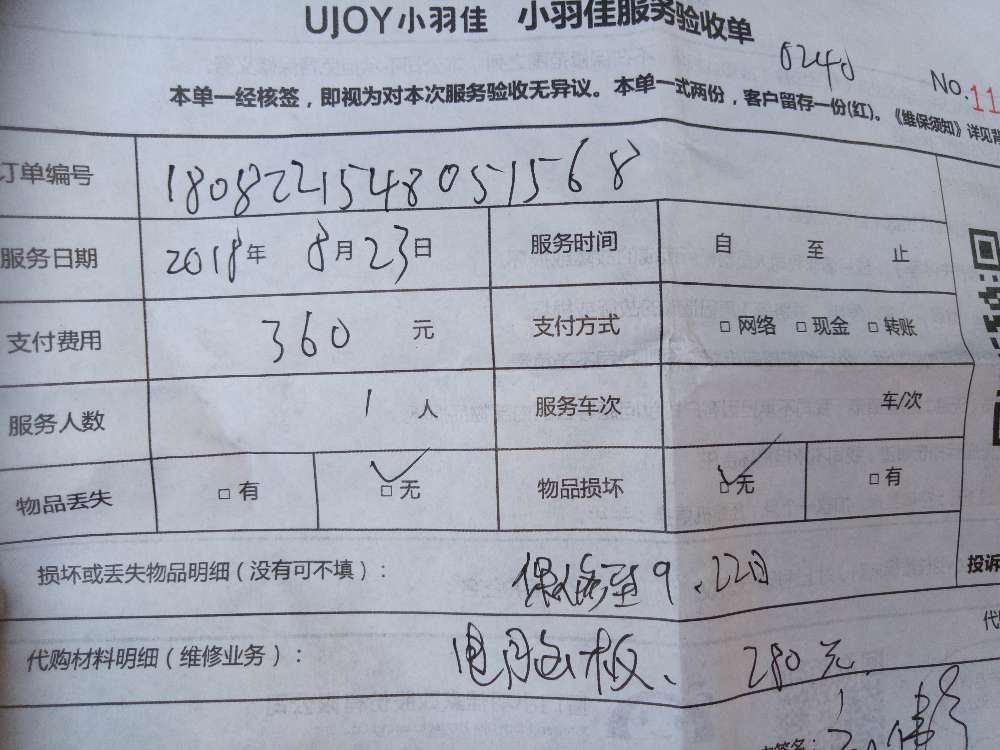 UJOY小羽佳 小羽佳服务验收单
0240
No.11
本单一经核签，即视为对本次服务验收无异议。本单一式两份，客户留存一份(红)。《维保须知》详见背
订单编号 1808221548051568
服务日期 2018年 8月23日 服务时间 自 至 止
支付费用 360 元 支付方式 □ 网络 □ 现金 □ 转账
服务人数 1 人 服务车次 车/次
物品丢失 □ 有 □ 无 物品损坏 □ 无 □ 有
损坏或丢失物品明细（没有可不填）： 9、22日
投诉
代购材料明细（维修业务）： 板、 280元
代
签名：